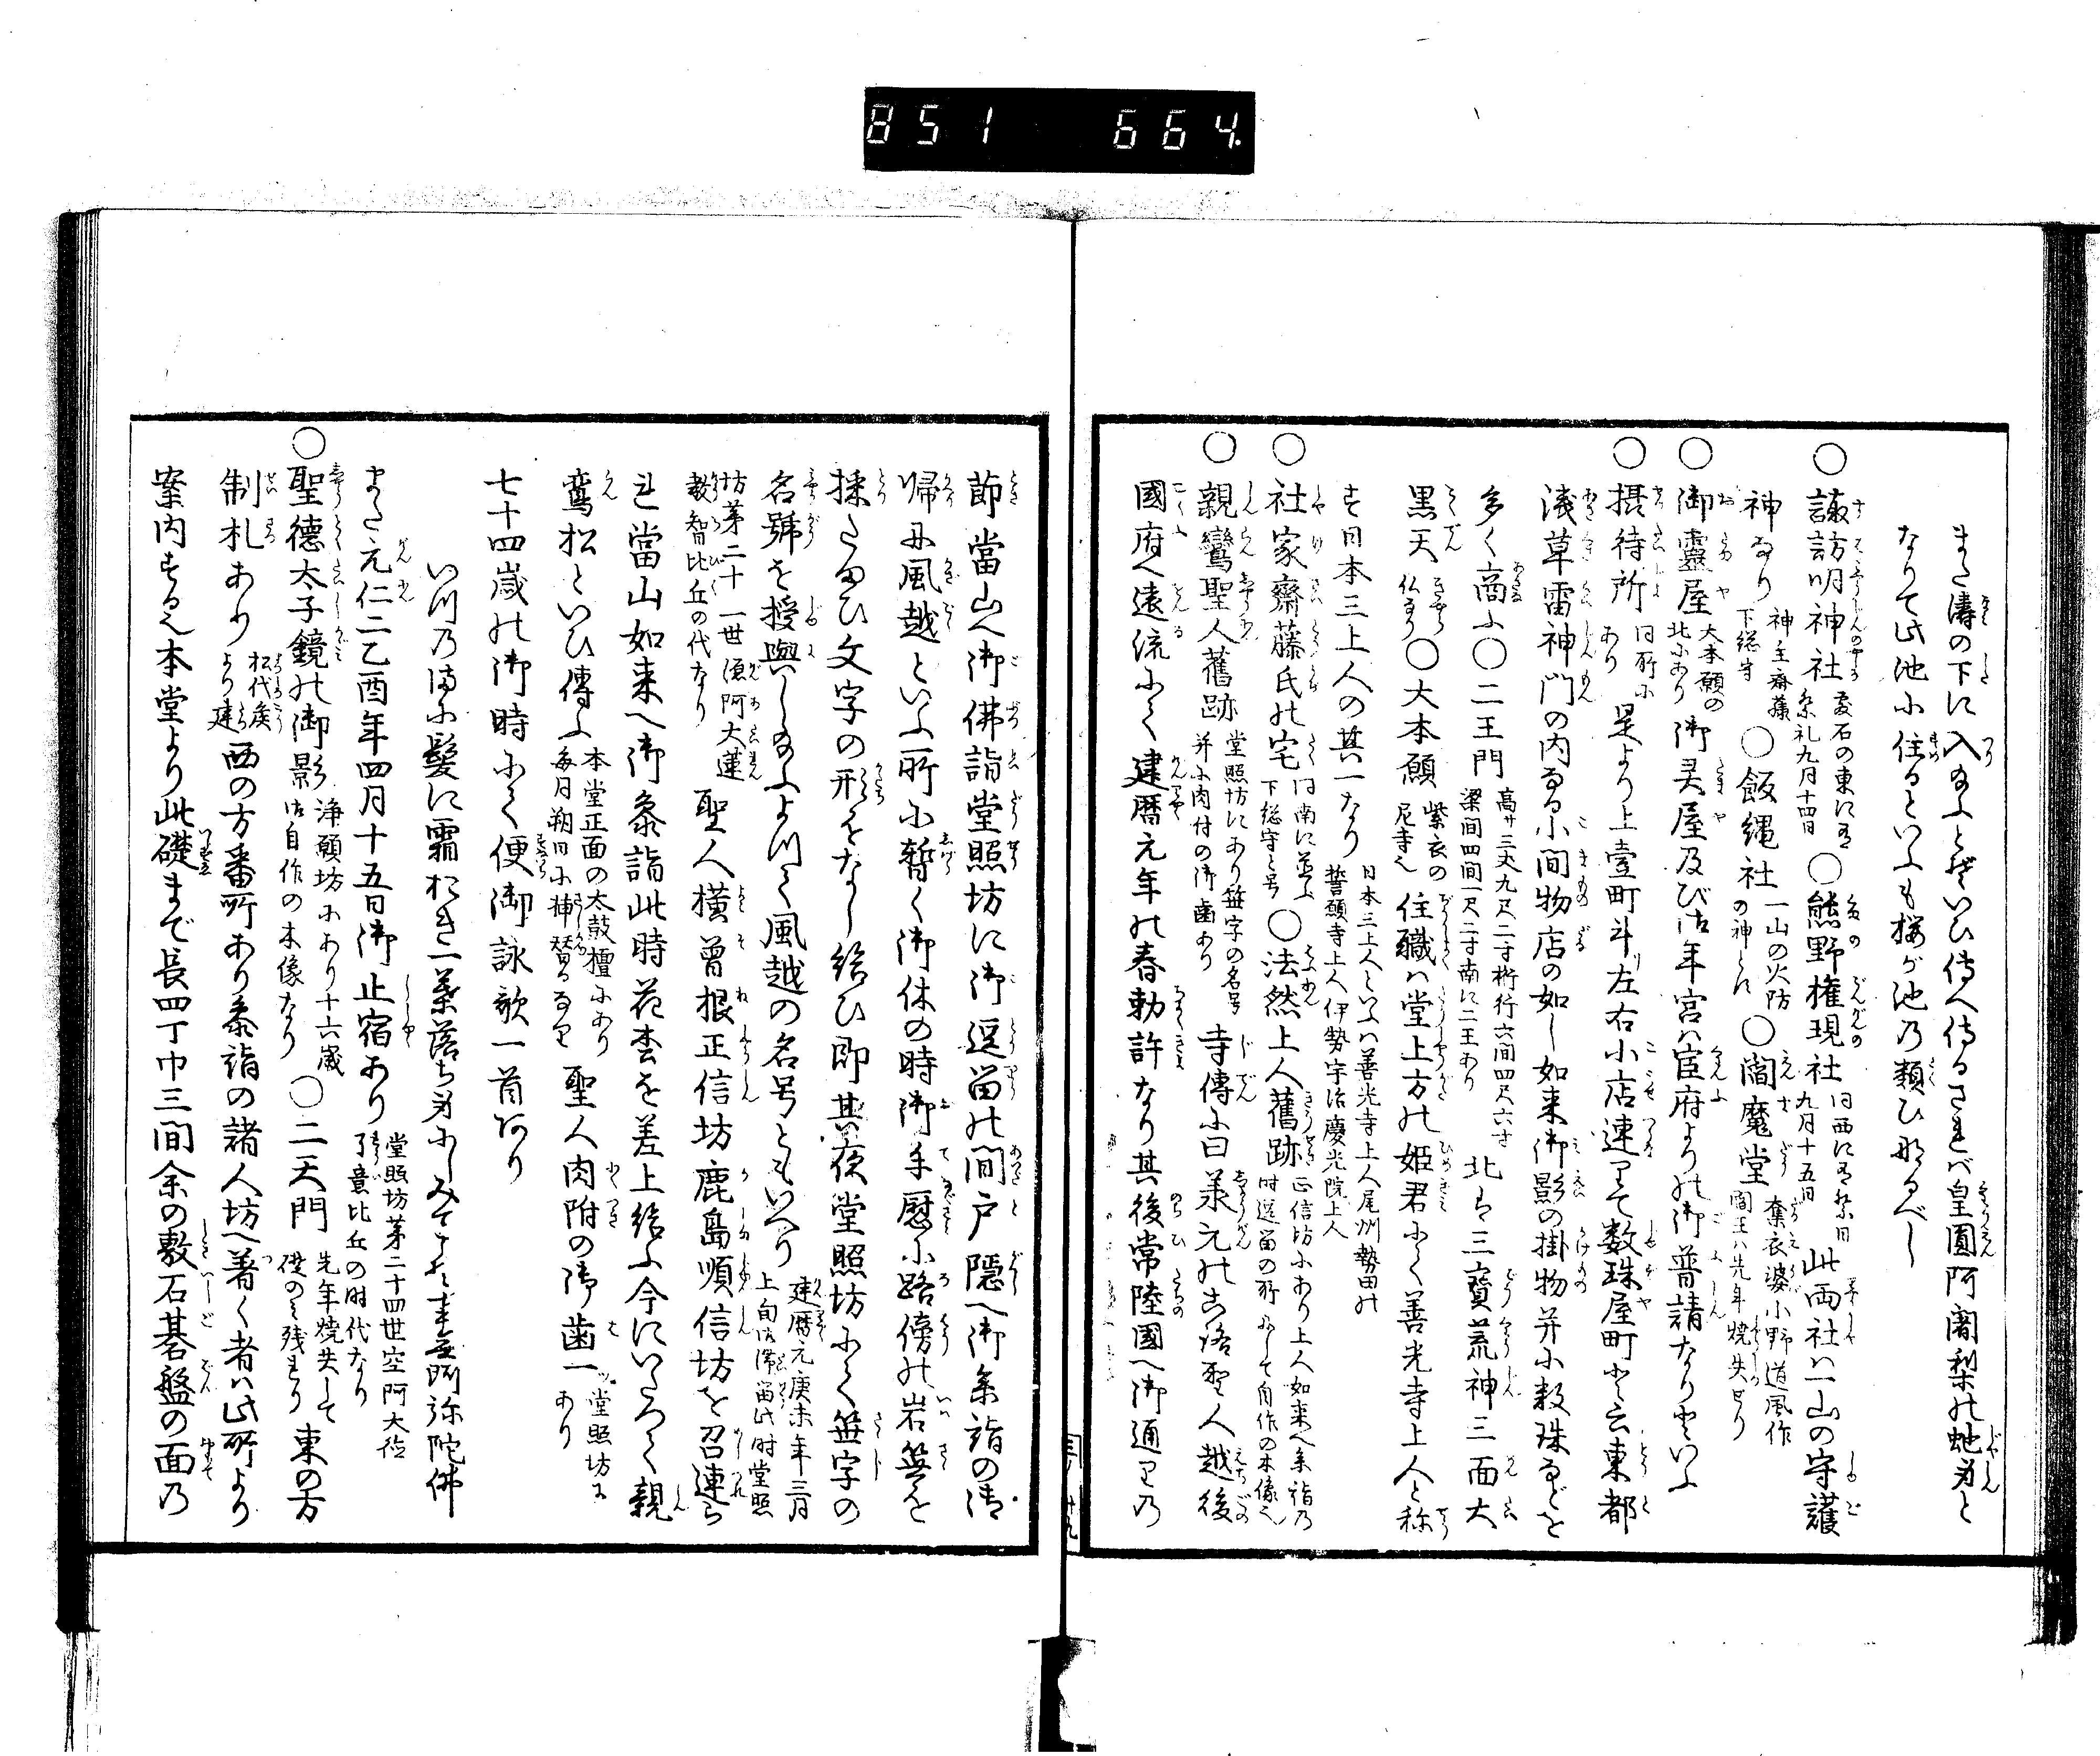 851 664.
また濤の下に入給ふと云ひ傳へ侍るされバ皇圓阿闍梨の蛇身と
なりて此池に住るといふも桜が池の類ひなるべし
○諏訪明神社 夜石の東に有 祭礼九月十四日 ○熊野権現社 同西に有祭日 九月十五日 此両社ハ一山の守護
神なり 神主斎藤 下総守 ○飯縄社 一山の火防 の神とに ○閻魔堂 奪衣婆小野道風作 閻王ハ先年焼失せり
○御靈屋 大本願の 北にあり 御灵屋及び御年宮ハ宦府よりの御普請なりといふ
○摂待所 同所に あり 是より上壹町斗り左右小店連りて数珠屋町と云東都
浅草雷神門の内なる小間物店の如し如来御影の掛物并に数珠などを
多く商ふ○二王門 高サ三丈九尺二寸桁行六間四尺六寸 梁間四間一尺二寸南に二王あり 北は三寳荒神三面大
黒天 仏なり ○大本願 紫衣の 尼寺也 住職ハ堂上方の姫君にて善光寺上人と称
す日本三上人の其一なり 日本三上人といふハ善光寺上人尾州勢田の 誓願寺上人伊勢宇治慶光院上人
○社家齋藤氏の宅 同南に並ふ 下総守と号 ○法然上人舊跡 正信坊にあり上人如来へ参詣乃 時逗留の所にして自作の木像也
○親鸞聖人舊跡 堂照坊にあり笹字の名号 并に肉付の御歯あり 寺傳に曰承元の比洛聖人越後
國府へ遠流にて建暦元年の春勅許なり其後常陸國へ御通りの
節當山へ御佛詣堂照坊に御逗留の間戸隠へ御参詣の御
帰り風越といふ所に暫く御休の時御手慰に路傍の岩笹を
採たまひ文字の形をなし給ひ即其夜堂照坊にて笹字の
名號を授與し給ふよつて風越の名号ともいへり 建暦元庚未年三月 上旬御滞留此时堂照
坊第二十一世 須阿大蓮 教智比丘の代なり 聖人横曾根正信坊鹿島順信坊を召連ら
れ當山如来へ御参詣此時花枩を差上給ふ今にいたつて親
鸞松といひ傳ふ 本堂正面の太鼓檀にあり 毎月朔日に挿替るなり 聖人肉附の御歯一ツ 堂照坊に あり
七十四歳の御時にて便御詠歌一首あり
いつの满に髪に霜おき一葉落ち身にしみてこそ南無阿弥陀佛
また元仁二乙酉年四月十五日御止宿あり 堂照坊第二十四世空阿大德 了意比丘の时代なり
○聖德太子鏡の御影 浄願坊にあり十六歳 御自作の木像なり ○二天門 先年焼失して 礎のミ残れり 東の方
制札あり 松代侯 より建 西の方番所あり参詣の諸人坊へ著く者ハ此所より
案内する也本堂より此礎まで長四丁巾三間余の敷石碁盤の面乃